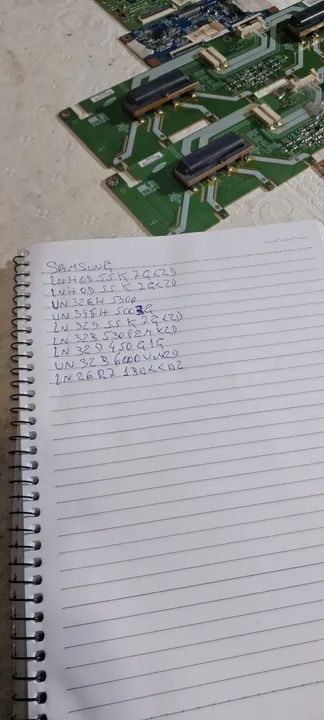 SAMSUNG
LN40D 55K 7G<ZD
LN40D 55K 7G<ZD
UN 32EH 5300
UN 39EH 5003G
LN 32D 55K 7G<ZD
LN 32B 530P2MXZD
LN 32D 450G1G
UN 32 B 6000VMXZD
LN 26 R7 1BAX<AZ